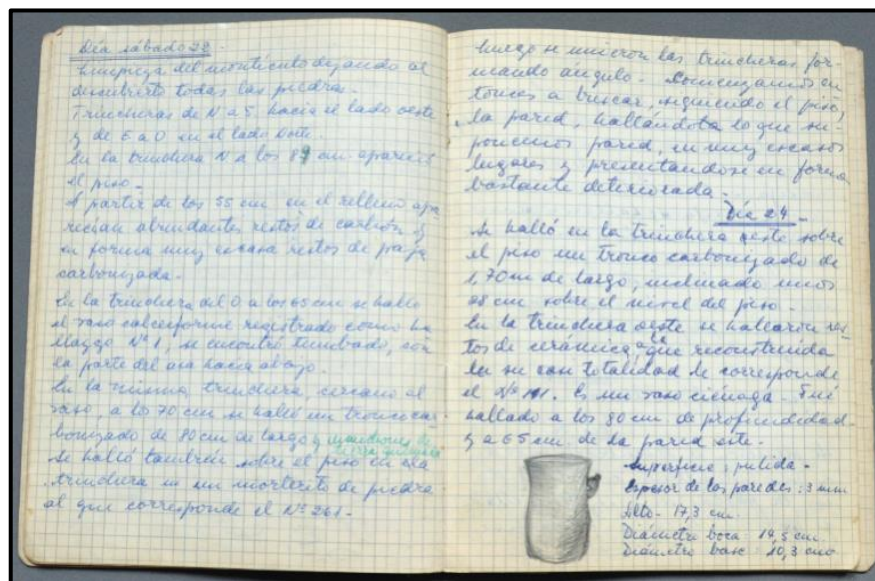 Día sábado 28 -
Limpieza del montículo dejando al
descubierto todas las piedras.
Trincheras de N a S. hacia el lado oeste
y de E a O en el lado norte.
En la trinchera N a los 87 cm apareció
el piso -
A partir de los 55 cm en el relleno apa-
recían abundantes restos de carbón y
en forma muy escasa restos de paja
carbonizada -
En la trinchera del O a los 65 cm se halló
el vaso calceiforme registrado como ha-
llazgo Nº 1, se encontró tumbado, con
la parte del asa hacia abajo.
En la misma trinchera, cercano al
vaso, a los 70 cm se halló un tronco car-
bonizado de 80 cm de largo y de
tierra quemada
Se halló también sobre el piso en esta
trinchera un morterito de piedra
al que corresponde el Nº 261 -
Luego se unieron las trincheras for-
mando ángulo - Comenzamos en
tonces a buscar, siguiendo el piso,
la pared, hallándola lo que su-
ponemos pared, en muy escasos
lugares y presentandose en forma
bastante deteriorada -
Día 29 -
Se halló en la trinchera oeste sobre
el piso un tronco carbonizado de
1,70 m de largo, inclinado unos
28 cm sobre el nivel del piso -
En la trinchera oeste se hallaron res-
tos de cerámica, a la que reconstruida
en su casi totalidad le corresponde
el Nº 111. Es un vaso ciénaga. Fué
hallado a los 80 cm de profundidad
y a 65 cm de la pared este -
Superficie: pulida -
Espesor de las paredes: 3 mm
Alto - 17,3 cm.
Diámetro boca: 14,5 cm
Diámetro base: 10,3 cm